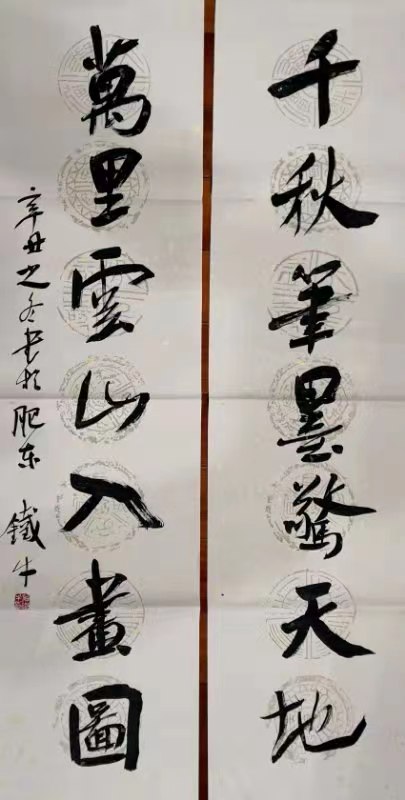 千秋筆墨驚天地
萬里雲山入畫圖
辛丑之冬書於肥东 鐵牛